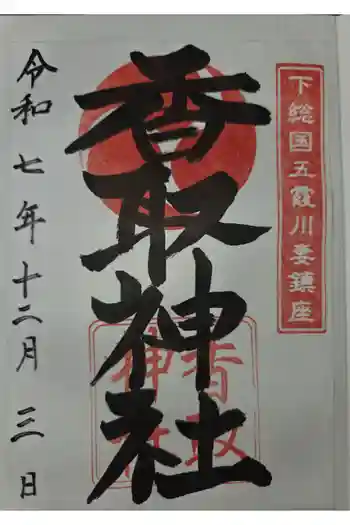 下総国五霞川妻鎮座
香取神社
香取神社
令和七年十二月三日